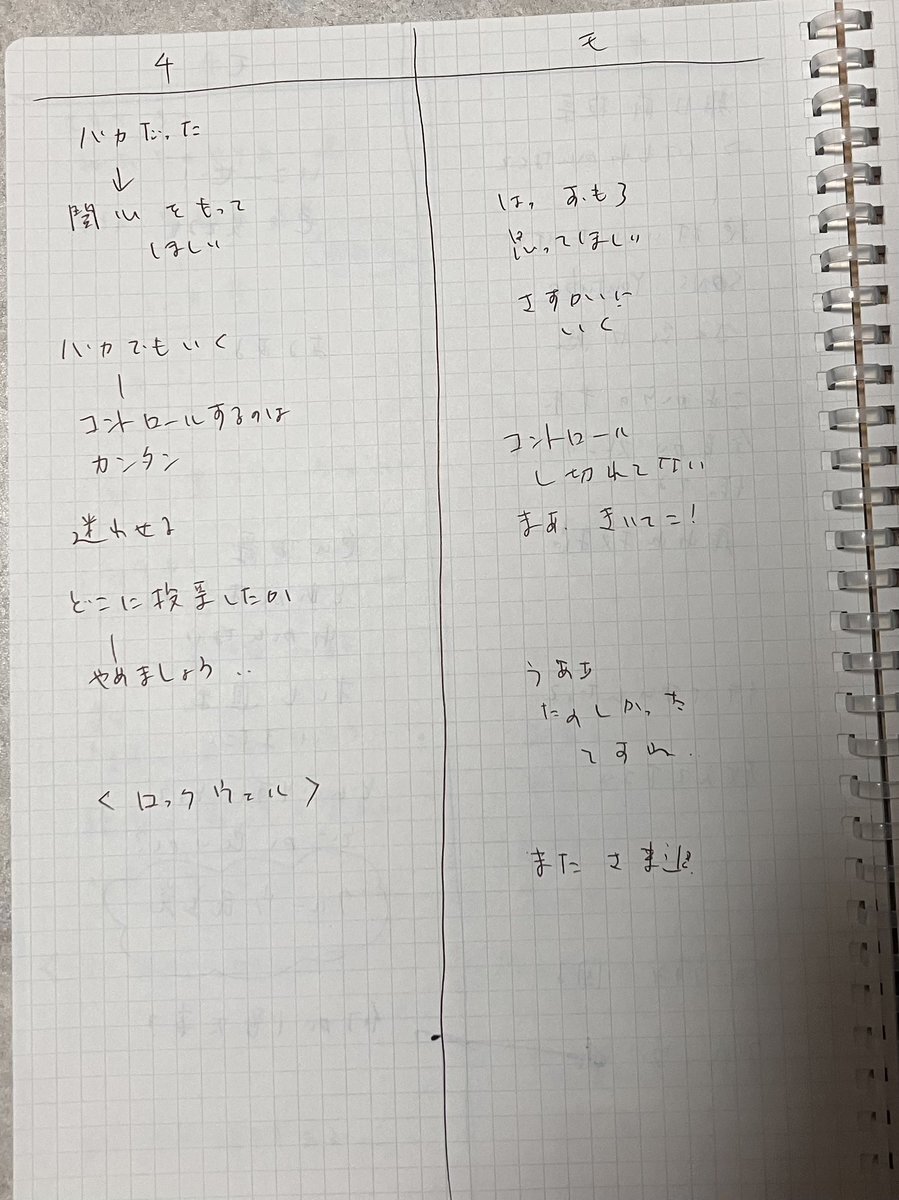 4
バカだった
↓
関心をもって
ほしい
バカでもいく
コントロールするのは
カンタン
迷わせる
どこに投票したか
やめましょう..
<ロックウェル>
モ
は、おもろ
思ってほしい
いく
コントロール
し切れてない
まあ、きいてこ!
うあち
たのしかった
ですね.
また さま